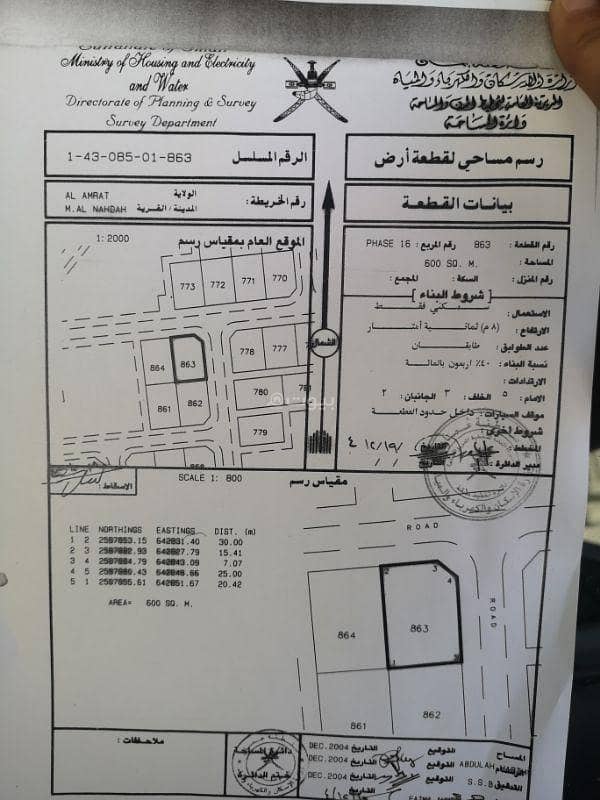 Sultanate of Oman
Ministry of Housing and Electricity
and Water
Directorate of Planning & Survey
Survey Department
دائرة المساحة
1-43-085-01-863
الرقم المسلسل
رسم مساحي لقطعة أرض
AL AMRAT
الولاية
M.AL NAHDAH
المدينة / القرية
رقم الخريطة:
بيانات القطعة
1: 2000
الموقع العام بمقياس رسم
773
772
771
770
864
863
861
862
778
777
780
781
779
بيوت
الشمال
رقم القطعة : 863
رقم المربع : PHASE 16
المساحة : 600 SQ. M.
رقم المنزل :
السكة :
المجمع :
شروط البناء
الاستعمال : سكني فقط
الارتفاع : (٨ م) ثمانية أمتار
عدد الطوابق : طابقان
نسبة البناء : ٤٠٪ اربعون بالمائة
الارتدادات :
الامام : ٥ الخلف : ٣ الجانبان : ٢
موقف السيارات : داخل حدود القطعة
شروط اخرى :
المخطط :
التاريخ
مدير الدائرة :
التاريخ
الاسقاط :
SCALE 1: 800
مقياس رسم
LINE NORTHINGS EASTINGS DIST. (m)
1 2 30.00
2 3 15.41
3 4 7.07
4 5 25.00
5 1 20.42
AREA= 600 SQ. M.
ROAD
ROAD
2
3
4
1
864
863
861
862
ملاحظات :
دائرة المساحة
ختم الدائرة
DEC. 2004 التاريخ
التوقيع
المساح
DEC. 2004 التاريخ
التوقيع
ABDULAH
DEC. 2004 التاريخ
التوقيع
S.S.B
التدقيق